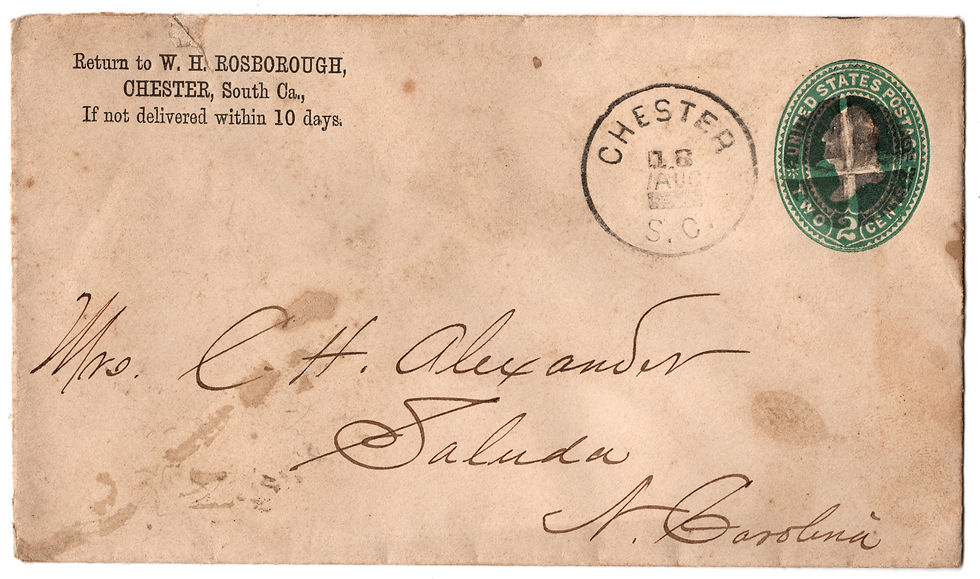 Return to W. H. ROSBOROUGH,
CHESTER, South Ca.,
If not delivered within 10 days.
CHESTER
18
AUG
S. C.
UNITED STATES POSTAGE
TWO 2 CENTS
Mrs. C. H. Alexander
Saluda
N. Carolina